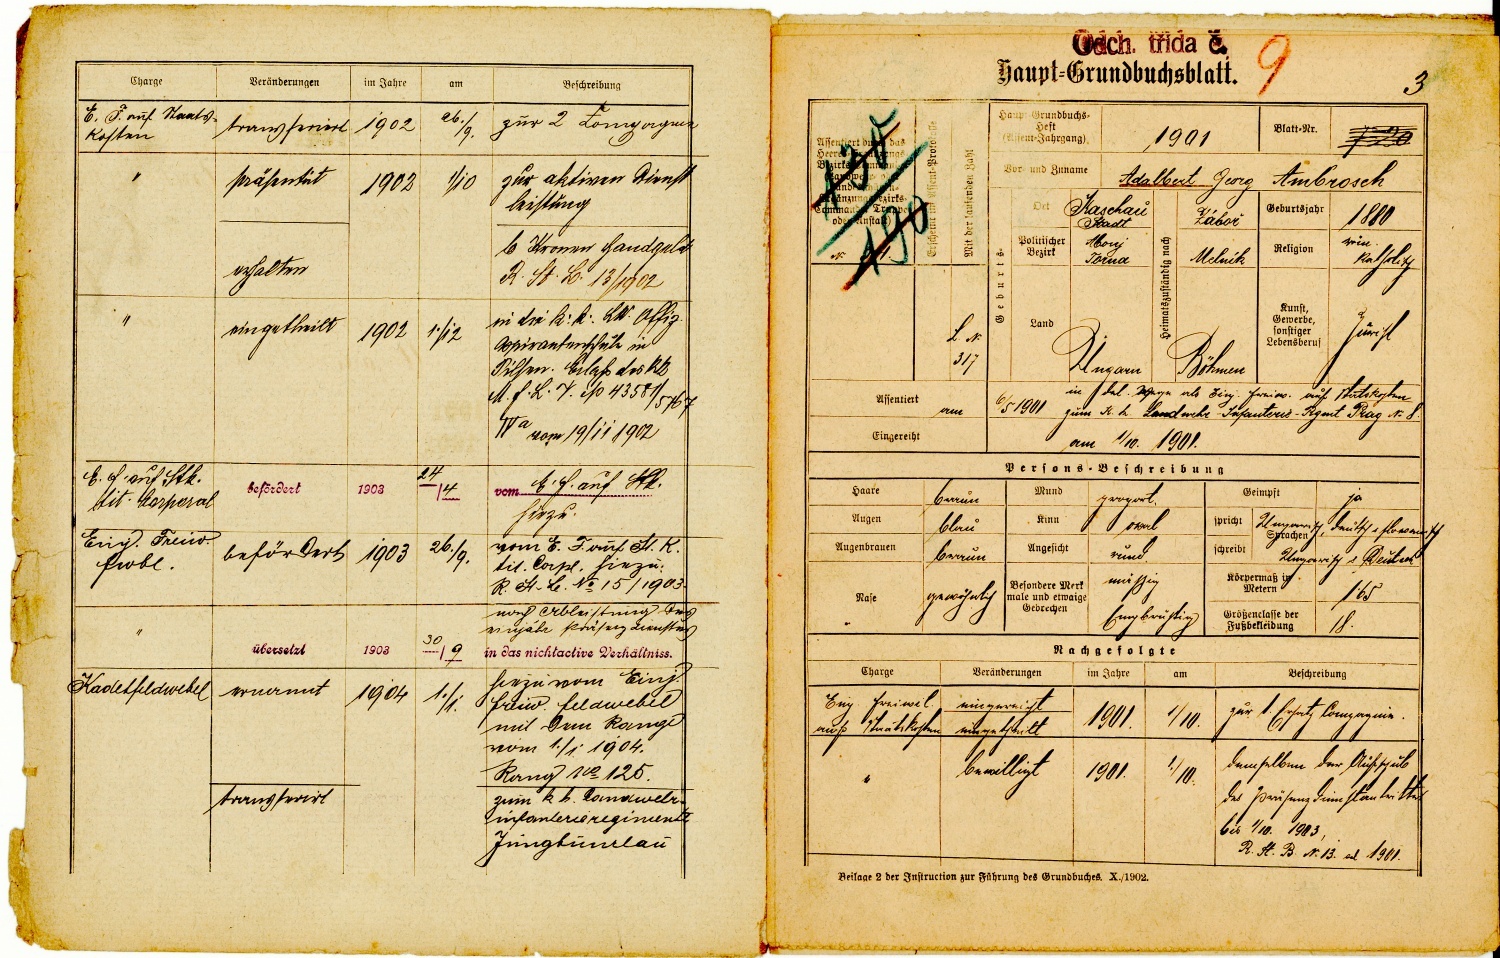 Charge Veränderungen im Jahre am Beschreibung
E. F. auf Staats- transferirt 1902 26./9. zur 2
kosten
" präsentirt 1902 1/10 zur aktiven Dienst
leistung
erhalten 6 Kronen Handgeld
R. St. B. 13/1902
" eingetheilt 1902 1./12 in die k. k. LW. Offiz.
Aspirantenschule in
Pilsen. Erlaß des kk
M. f. L. V. No 43581/5767
IVa vom 19/11 1902
E. F. auf Stk. befördert 1903 24/4 vom E. F. auf Stk.
tit. Corporal hiezu.
Einj. Freiw. befördert 1903 26./9. vom E. F. auf St. K.
Fwbl. tit. Corpl. hiezu.
R. St. B. No 15/1903
" nach Ableistung des
einjähr Präsenzdienstes
übersetzt 1903 30/9 in das nichtactive Verhältniss.
Kadetfeldwebel ernannt 1904 1./1. hiezu vom Einj.
freiw feldwebel
mit dem Range
vom 1./1 1904.
Rang No 125.
transferirt zum k. k. Landwehr-
infanterieregimente
Jungbunzlau
Odch. třída č. 9
Haupt=Grundbuchsblatt. 3
Haupt-Grundbuchs-
Heft
(Assent-Jahrgang) 1901 Blatt=Nr.
Vor- und Zuname Adalbert Georg Ambrosch
Erscheint im Assent-Protokolle
Mit der laufenden Zahl
L. N.
317
Geburts-
Ort Kaschau
Stadt
Politischer
Bezirk
Torna
Land Ungarn
Heimatszuständig nach
Záboř
Melnik
Böhmen
Geburtsjahr 1880
Religion röm.
katholisch
Kunst,
Gewerbe,
sonstiger
Lebensberuf Jurist
Assentiert am 6/5 1901 als Einj. freiw. auf Statskosten
zum K. k. Landwehr-Infanterie-Rgmt Prag No 8.
Eingereiht am 1/10. 1901.
Persons=Beschreibung
Haare braun Mund proport. Geimpft ja
Augen blau Kinn oval spricht Sprachen Ungarisch, deutsch, slovenisch
Augenbrauen braun Angesicht rund schreibt Ungarisch, Deutsch
Nase gewöhnlich Besondere Merk
male und etwaige
Gebrechen mäßig
Engbrüstig
Körpermaß in
Metern 165
Größenclasse der
Fußbekleidung 18.
Nachgefolgte
Charge Veränderungen im Jahre am Beschreibung
Einj. Freiwil. eingereiht 1901. 1/10. zur 1. Ersatz Compagnie.
auf Staatskosten eingetheilt
" bewilligt 1901. 1./10. demselben der Aufschub
des Präsenzdienstantrittes
bis 1/10. 1903,
R. St. B. N. 13. 1901.
Beilage 2 der Instruction zur Führung des Grundbuches. X./1902.